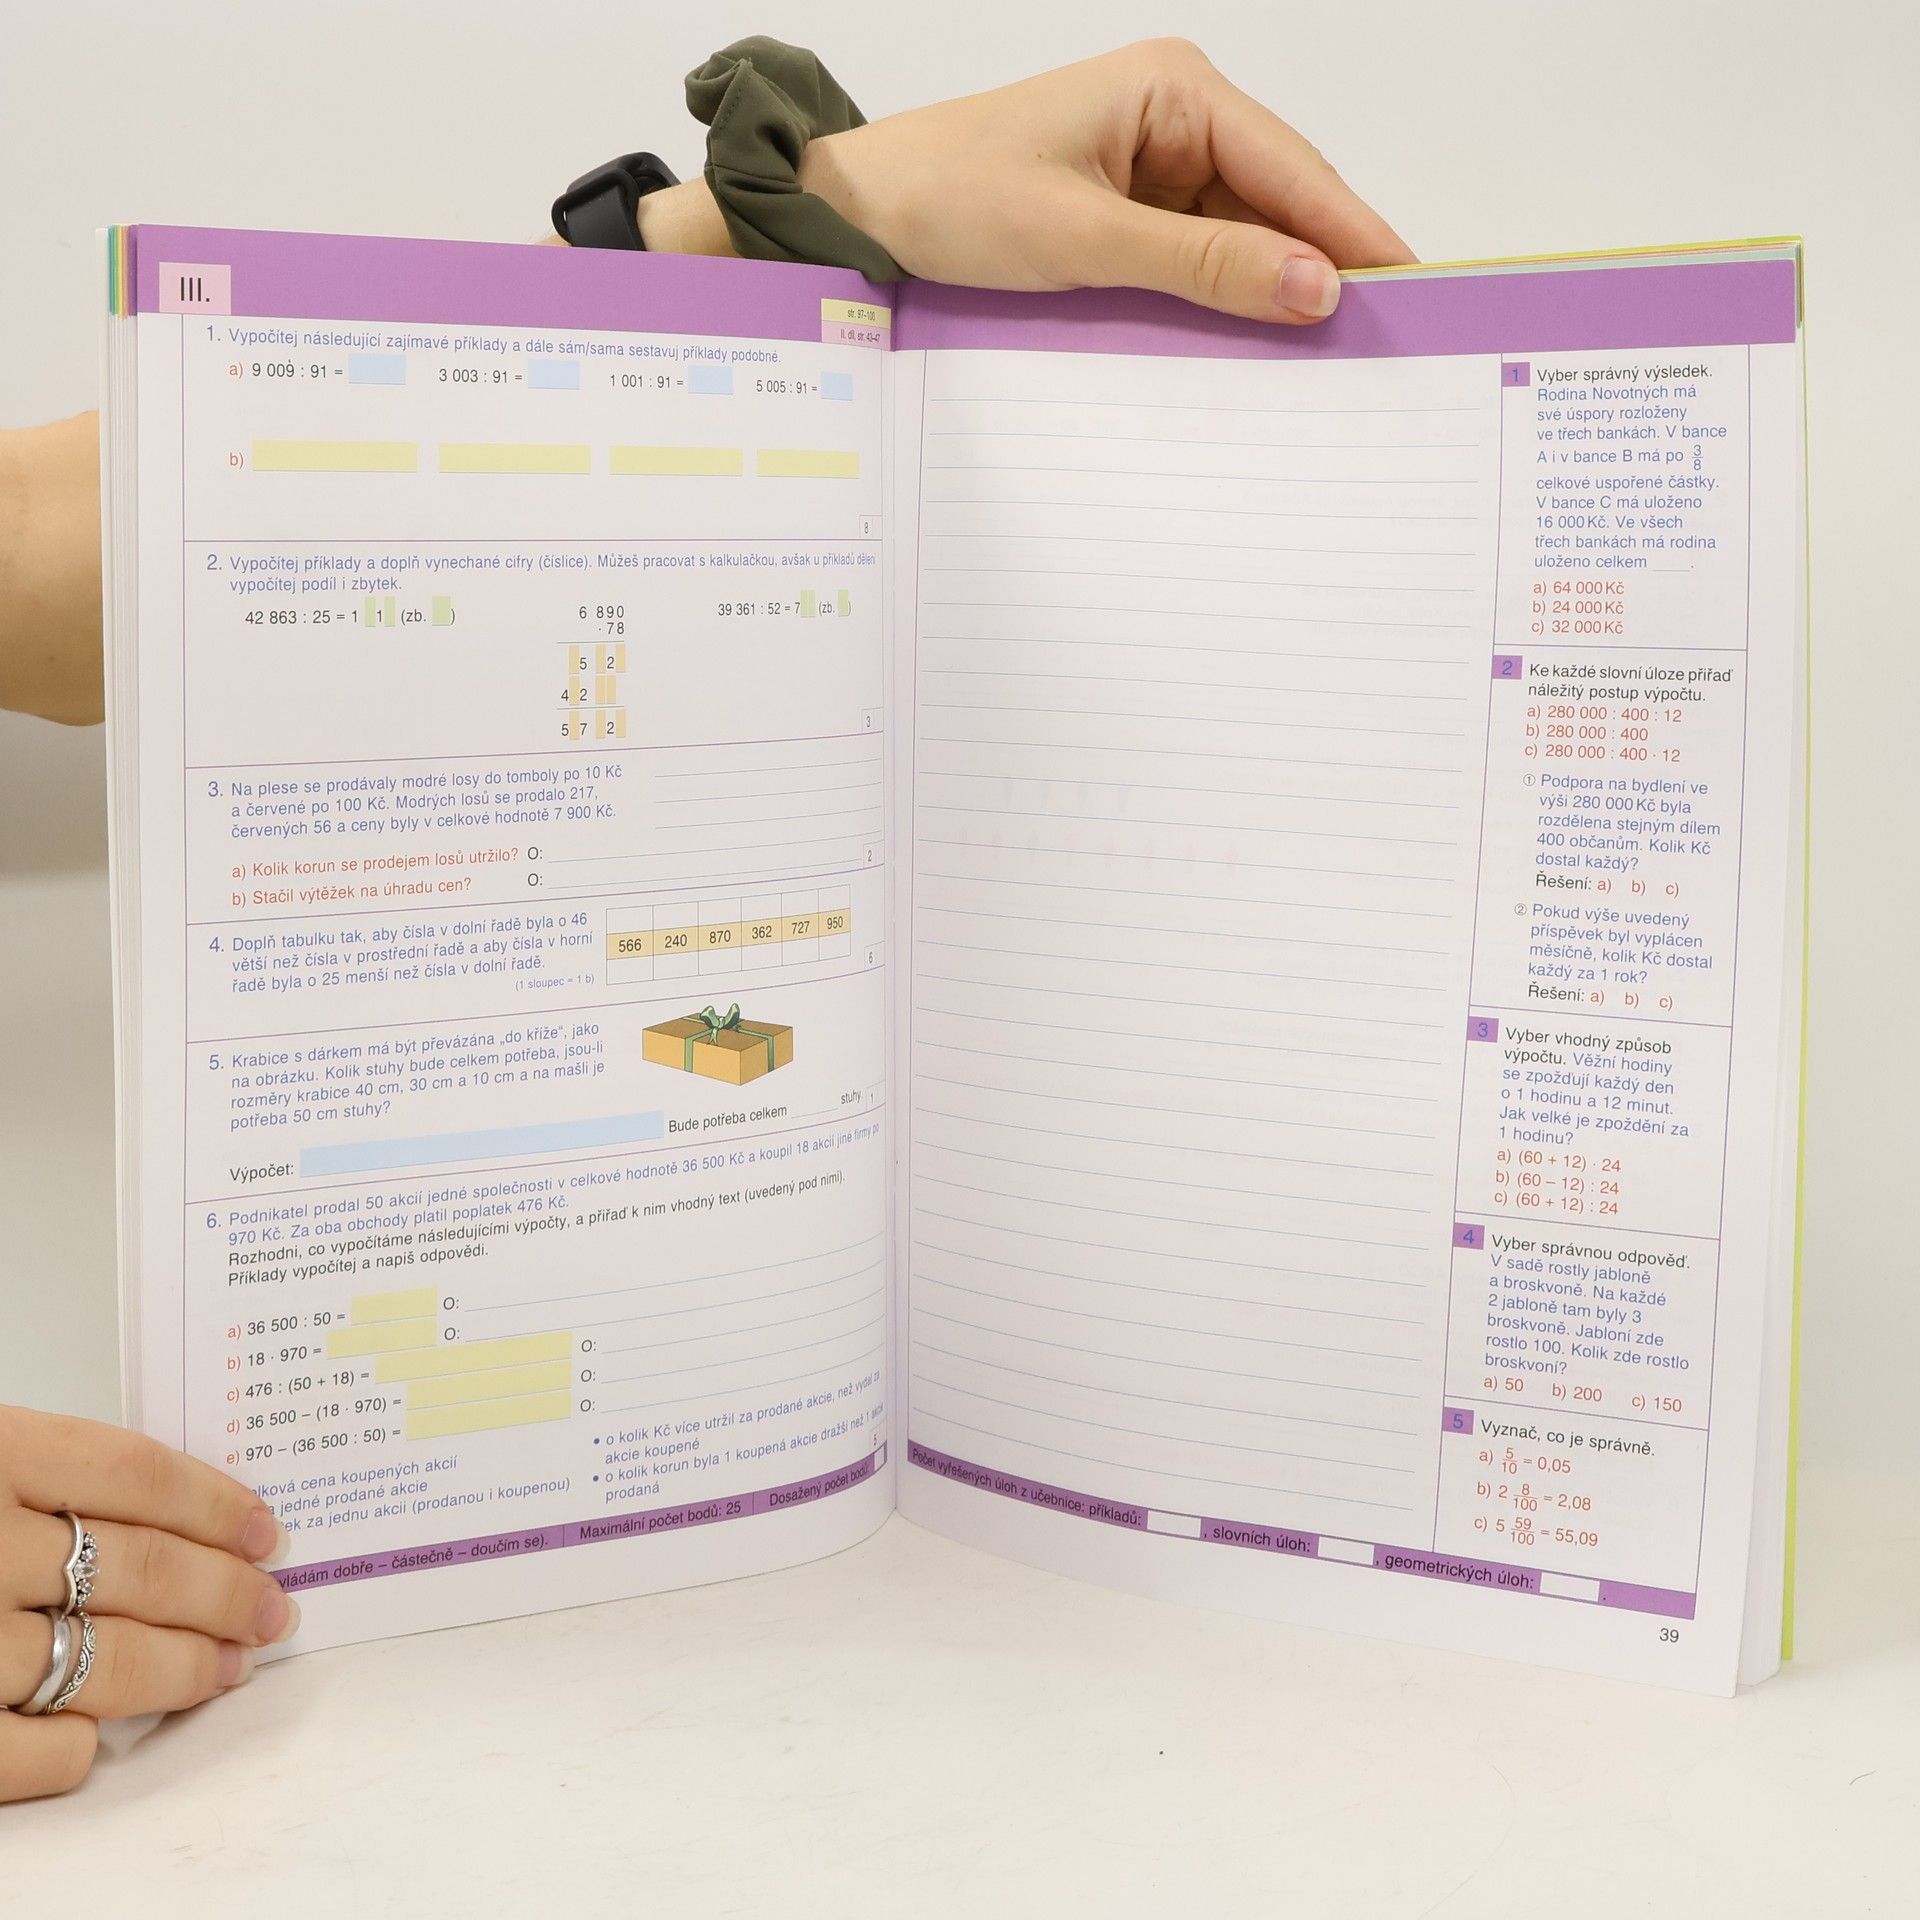 III.
str. 97–100
II. díl, str. 43–47
1. Vypočítej následující zajímavé příklady a dále sám/sama sestavuj příklady podobné.
a) 9 009 : 91 = 3 003 : 91 = 1 001 : 91 = 5 005 : 91 =
b)
8
2. Vypočítej příklady a doplň vynechané cifry (číslice). Můžeš pracovat s kalkulačkou, avšak u příkladů dělení
vypočítej podíl i zbytek.
42 863 : 25 = 1 1 (zb. ) 6 890 39 361 : 52 = 7 (zb. )
· 78
5 2
4 2
5 7 2
3
3. Na plese se prodávaly modré losy do tomboly po 10 Kč
a červené po 100 Kč. Modrých losů se prodalo 217,
červených 56 a ceny byly v celkové hodnotě 7 900 Kč.
a) Kolik korun se prodejem losů utržilo? O:
b) Stačil výtěžek na úhradu cen? O:
2
4. Doplň tabulku tak, aby čísla v dolní řadě byla o 46
větší než čísla v prostřední řadě a aby čísla v horní
řadě byla o 25 menší než čísla v dolní řadě.
(1 sloupec = 1 b)
566 240 870 362 727 950
6
5. Krabice s dárkem má být převázána „do kříže“, jako
na obrázku. Kolik stuhy bude celkem potřeba, jsou-li
rozměry krabice 40 cm, 30 cm a 10 cm a na mašli je
potřeba 50 cm stuhy?
Výpočet: Bude potřeba celkem ______ stuhy.
1
6. Podnikatel prodal 50 akcií jedné společnosti v celkové hodnotě 36 500 Kč a koupil 18 akcií jiné firmy po
970 Kč. Za oba obchody platil poplatek 476 Kč.
Rozhodni, co vypočítáme následujícími výpočty, a přiřaď k nim vhodný text (uvedený pod nimi).
Příklady vypočítej a napiš odpovědi.
a) 36 500 : 50 = O:
b) 18 · 970 = O:
c) 476 : (50 + 18) = O:
d) 36 500 – (18 · 970) = O:
e) 970 – (36 500 : 50) = O:
lková cena koupených akcií
jedné prodané akcie
ek za jednu akcii (prodanou i koupenou)
• o kolik Kč více utržil za prodané akcie, než vydal za
akcie koupené
• o kolik korun byla 1 koupená akcie dražší než 1
prodaná
5
vládám dobře – částečně – doučím se). Maximální počet bodů: 25 Dosažený počet bodů:
1 Vyber správný výsledek.
Rodina Novotných má
své úspory rozloženy
ve třech bankách. V bance
A i v bance B má po 3/8
celkové uspořené částky.
V bance C má uloženo
16 000 Kč. Ve všech
třech bankách má rodina
uloženo celkem ____.
a) 64 000 Kč
b) 24 000 Kč
c) 32 000 Kč
2 Ke každé slovní úloze přiřaď
náležitý postup výpočtu.
a) 280 000 : 400 : 12
b) 280 000 : 400
c) 280 000 : 400 · 12
① Podpora na bydlení ve
výši 280 000 Kč byla
rozdělena stejným dílem
400 občanům. Kolik Kč
dostal každý?
Řešení: a) b) c)
② Pokud výše uvedený
příspěvek byl vyplácen
měsíčně, kolik Kč dostal
každý za 1 rok?
Řešení: a) b) c)
3 Vyber vhodný způsob
výpočtu. Věžní hodiny
se zpožďují každý den
o 1 hodinu a 12 minut.
Jak velké je zpoždění za
1 hodinu?
a) (60 + 12) · 24
b) (60 – 12) : 24
c) (60 + 12) : 24
4 Vyber správnou odpověď.
V sadě rostly jabloně
a broskvoně. Na každé
2 jabloně tam byly 3
broskvoně. Jabloní zde
rostlo 100. Kolik zde rostlo
broskvoní?
a) 50 b) 200 c) 150
5 Vyznač, co je správně.
a) 5/10 = 0,05
b) 2 8/100 = 2,08
c) 5 59/100 = 55,09
Počet vyřešených úloh z učebnice: příkladů: , slovních úloh: , geometrických úloh: .
39